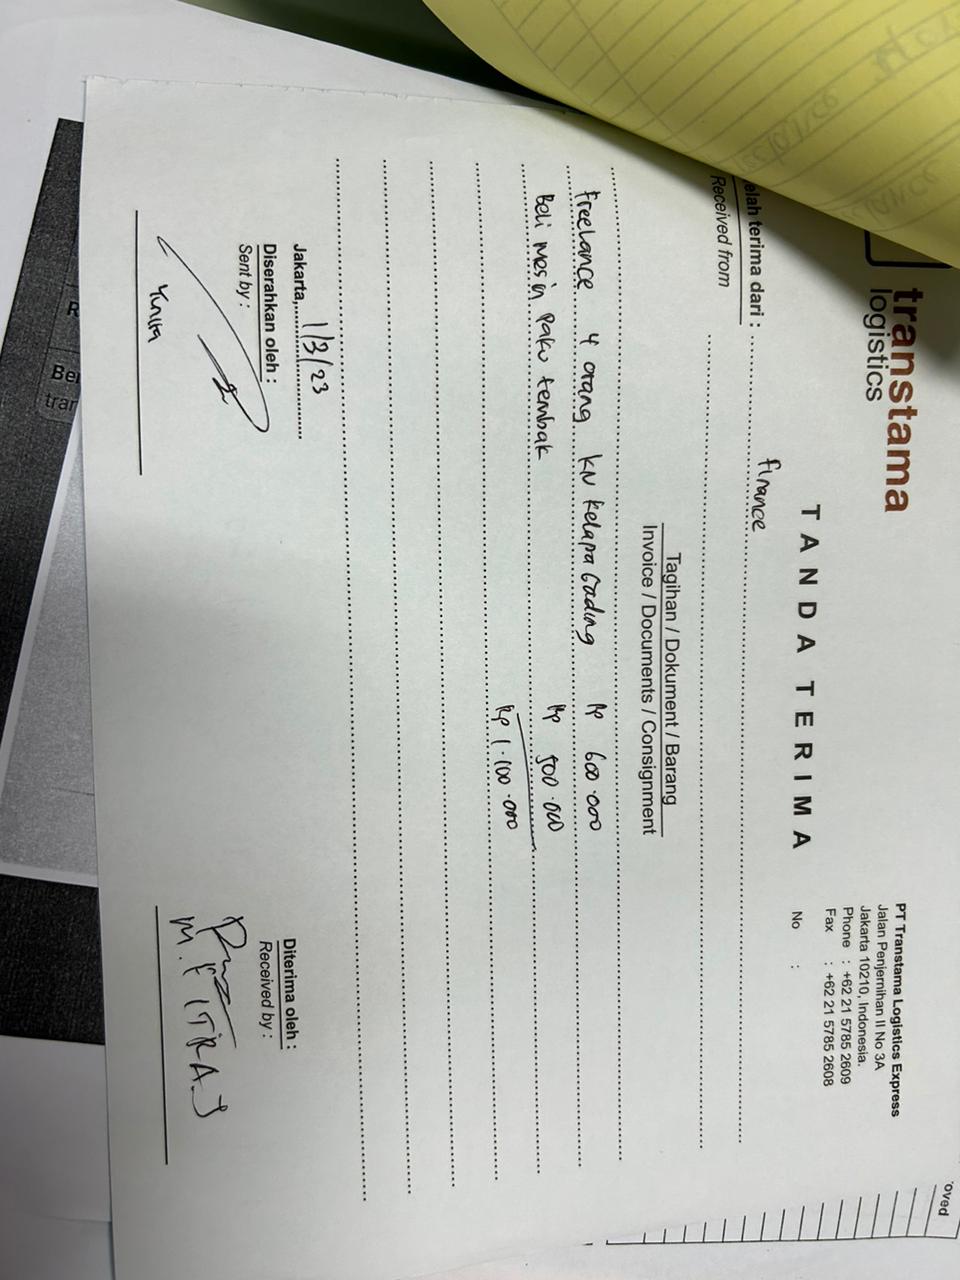 transtama
logistics
PT Transtama Logistics Express
Jalan Penjernihan II No 3A
Jakarta 10210, Indonesia.
Phone : +62 21 5785 2609
Fax : +62 21 5785 2608
TANDA TERIMA
No :
elah terima dari : finance
Received from
Tagihan / Dokument / Barang
Invoice / Documents / Consignment
freelance 4 orang KN Kelapa Gading Rp 600.000
Beli mesin paku tembak Rp 500.000
Rp 1.100.000
Jakarta, 1/3/23
Diserahkan oleh :
Sent by :
Diterima oleh :
Received by :
Yunita
M. FITRA J
R
Ber
tran
oved